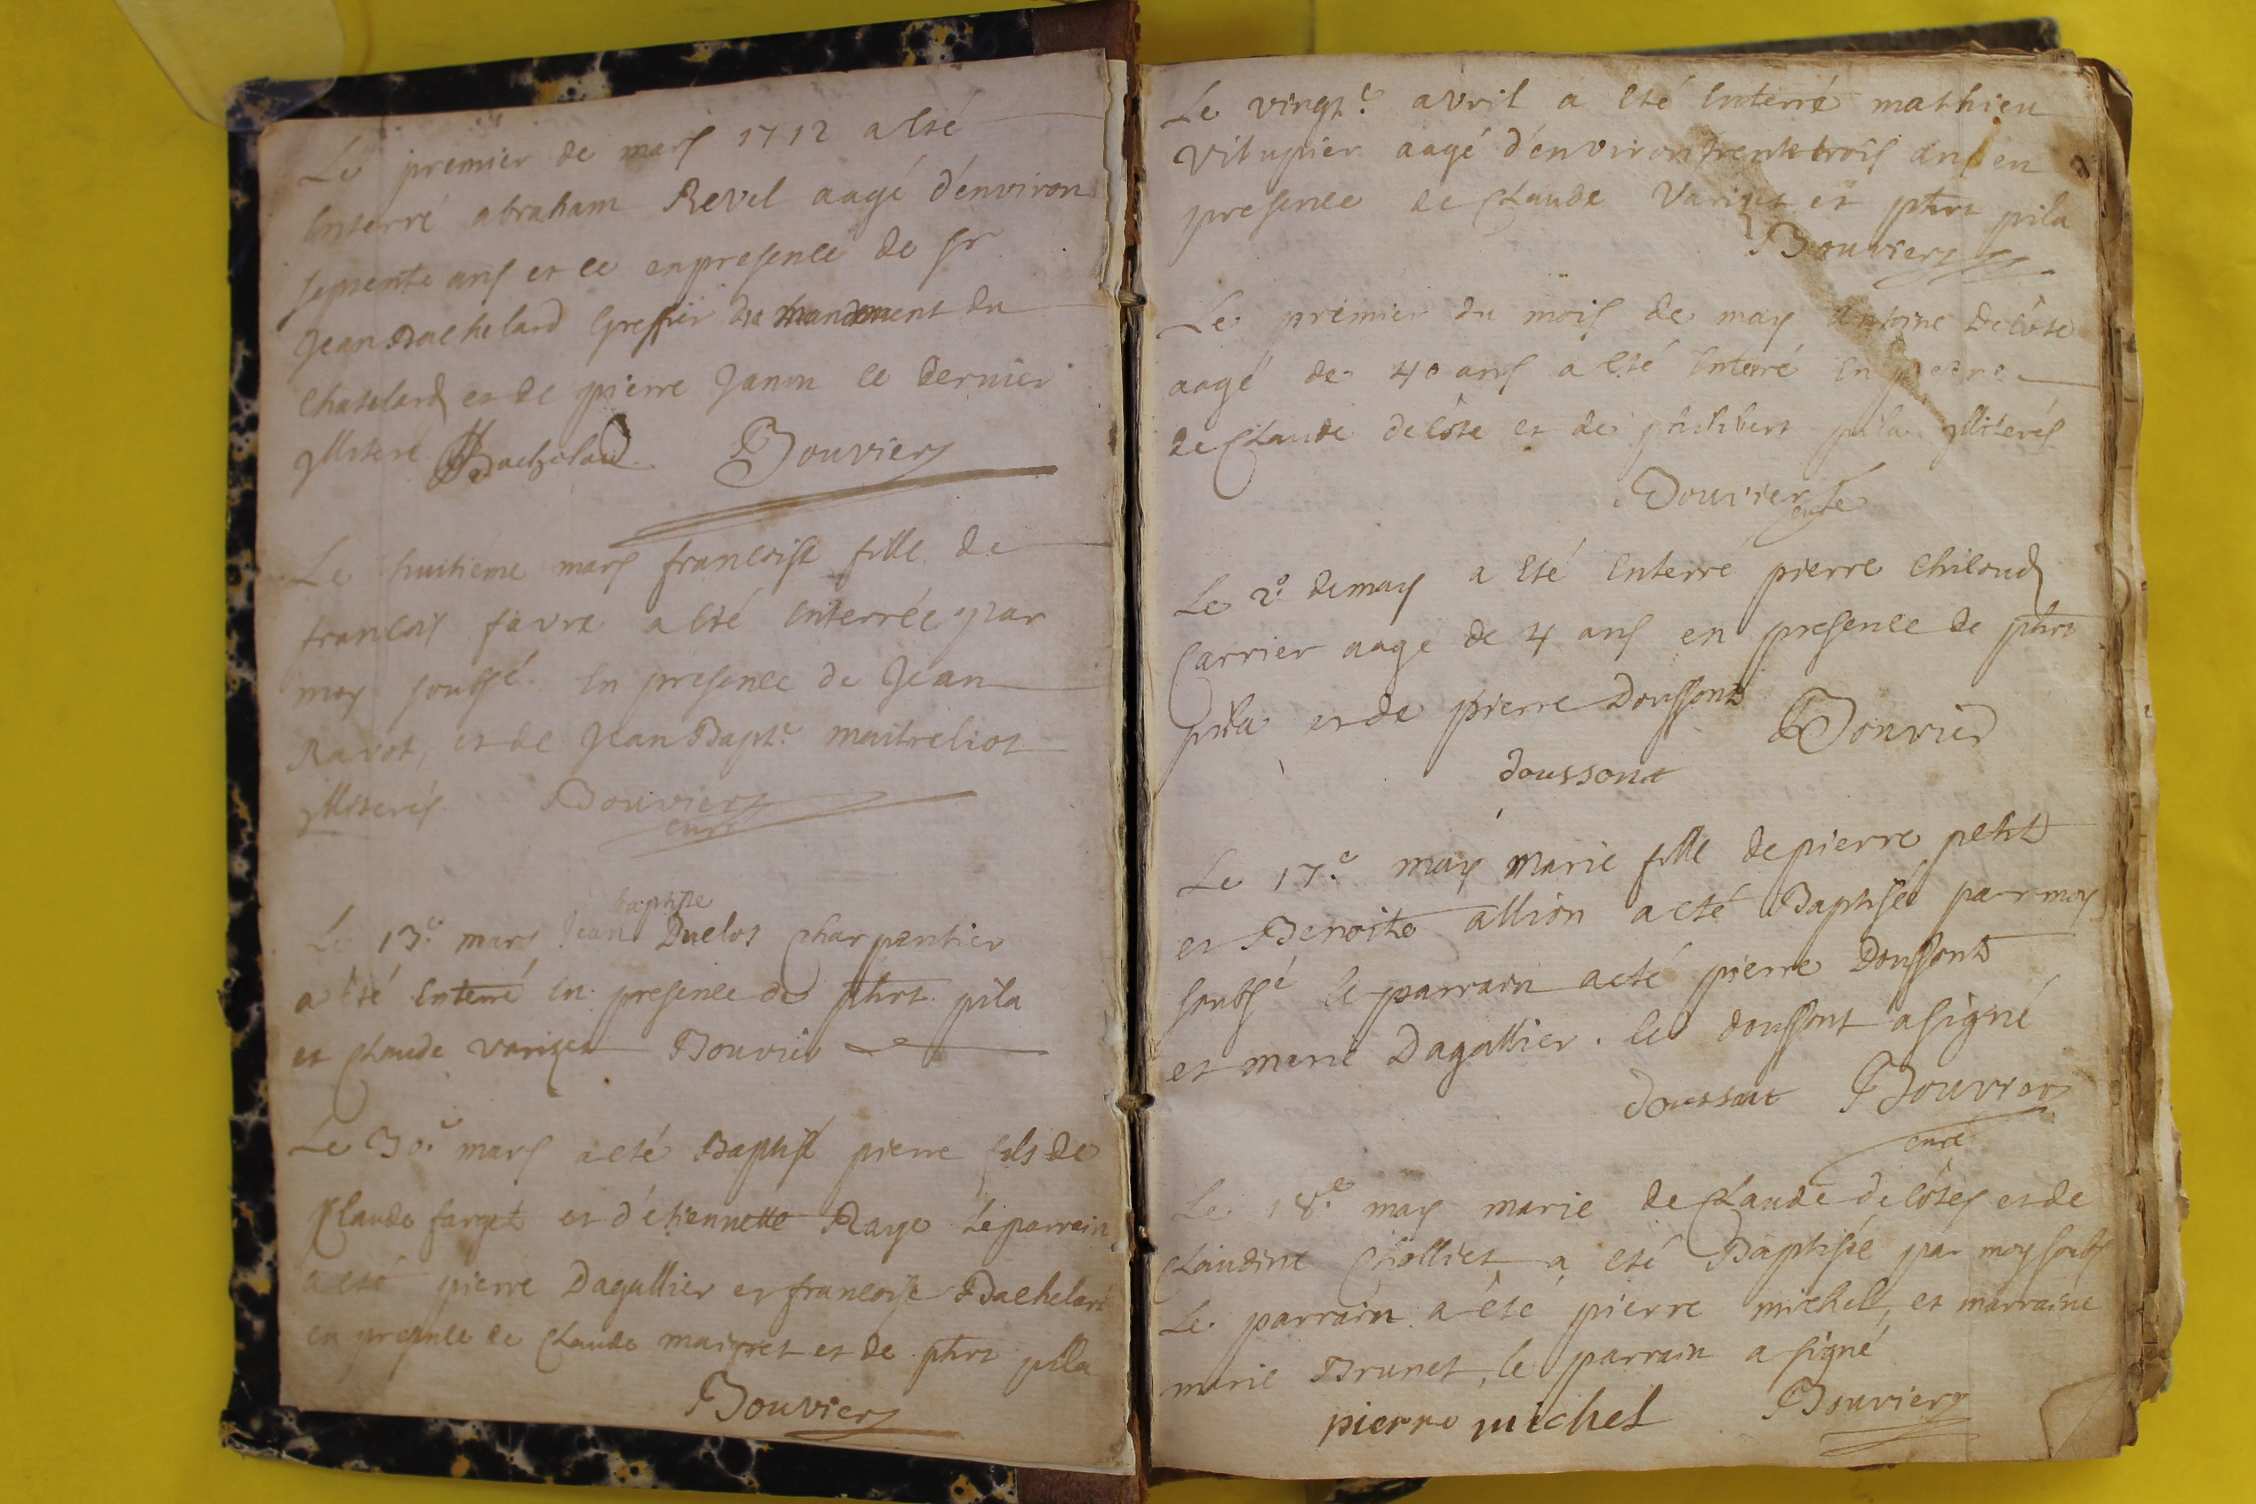 Le premier de mars 1712 a esté
enterré abraham Revel aagé d'environ
septente ans et ce en presence de sr
Jean Bachelard Greffier du mandement du
Chatelard et de pierre Janin ce dernier
illiteré Bachelard Bouvier
Le huitiéme mars francoise fille de
francois favre a esté enterrée par
moy soubsé. en presence de Jean
Ravot, et de Jean Bapte. maitreliot
illiterés Bouvier
curé
baptiste
Le 13e. mars Jean Duclos Charpentier
a été enterré en presence de phrt. pila
et Claude varizet Bouvier
Le 30e. mars a eté Baptisé pierre fils de
Claude farget et d'étiennette Raye le parrain
a eté pierre Dagallier et francoise Bachelard
en presence de Claude maigret et de phrt pila
Bouvier
Le vingte. avril a eté enterré mathieu
Vitupier aagé d'environ trente trois ans en
presence de Claude Varizet et phrt pila
Bouvier
Le premier du mois de may Antoine Decôte
aagé de 40 ans a été enterré en presence
de Claude decôte et de philibert pila illiterés
Bouvier
curé
Le 2e. de may a eté enterré pierre Chiloud
Carrier aagé de 4 ans en presence de phrt
pila et de pierre Doussont
Bouvier
doussont
Le 17e. may Marie fille de pierre petit
et Benoite allion a eté Baptisée par moy
soubsé le parrain a eté pierre Doussont
et marie Dagallier. led doussont a signé
doussont Bouvier
curé
Le 18e. may marie de Claude decôtes et de
Claudine Cholliet a eté Baptisée par moy soubs
Le parrain a été pierre michel, et marraine
marie Brunet, le parrain a signé
pierre michel Bouvier